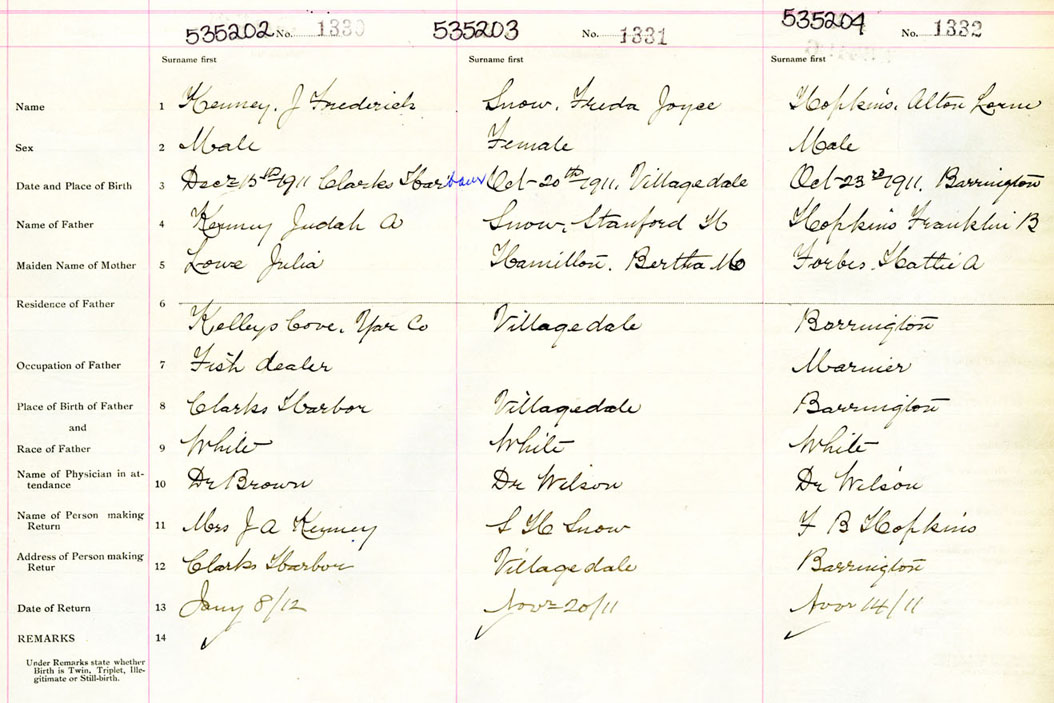 535202 No. 1330 535203 No. 1331 535204 No. 1332
Surname first Surname first Surname first
Name 1 Kenney, J Frederick Snow, Freda Joyce Hopkins, Alton Lorne
Sex 2 Male Female Male
Date and Place of Birth 3 Decr 15th 1911 Clarks Harbour Oct 20th 1911, Villagedale Oct 23rd 1911, Barrington
Name of Father 4 Kenney Judah A Snow, Stanford H Hopkins Franklin B
Maiden Name of Mother 5 Lowe Julia Hamilton, Bertha M Forbes, Hattie A
Residence of Father 6
Kelleys Cove, Yar Co Villagedale Barrington
Occupation of Father 7 Fish dealer Marnier
Place of Birth of Father 8 Clarks Harbor Villagedale Barrington
and
Race of Father 9 White White White
Name of Physician in at-
tendance 10 Dr Brown Dr Wilson Dr Wilson
Name of Person making
Return 11 Mrs J A Kenney S H Snow F B Hopkins
Address of Person making
Retur 12 Clarks Harbor Villagedale Barrington
Date of Return 13 Jany 8/12 Novr 20/11 Novr 14/11
REMARKS 14
Under Remarks state whether
Birth is Twin, Triplet, Ille-
gitimate or Still-birth.